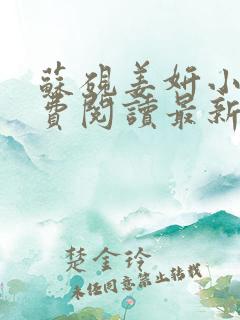 蘇硯姜妍小
費閱讀最新
楚金玲
未经同意禁止转载